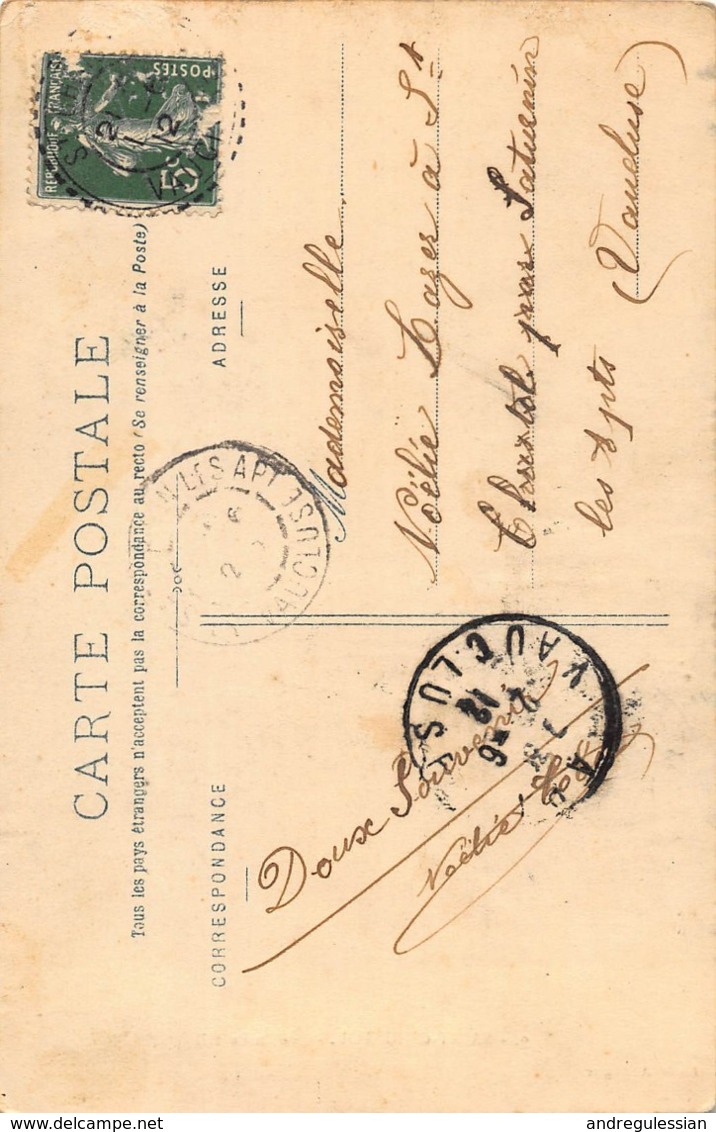 CARTE POSTALE
Tous les pays étrangers n'acceptent pas la correspondance au recto (Se renseigner à la Poste)
CORRESPONDANCE
ADRESSE
Doux Souvenir
Noëlie
Mademoiselle
Noëlie à St
par Saturnin
les Apts
(Vaucluse)
REPUBLIQUE FRANÇAISE
POSTES
5c
VAUCLUSE
LES APT
VAUCLUSE
delcampe.net
andregulessian